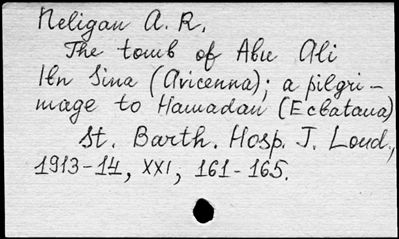 Neligan A. R.
The tomb of Abu Ali
Ibn Sina (Avicenna); a pilgri-
mage to Hamadan (Ecbatana)
St. Barth. Hosp. J. Lond.,
1913-14, XXI, 161-165.